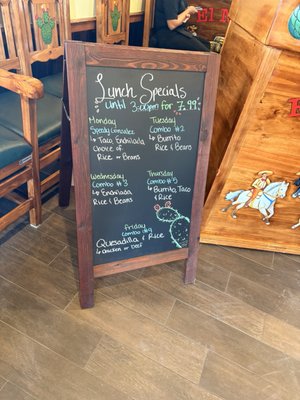 Lunch Specials
Until 3:00pm for 7.99
Monday
Speedy Gonzales
↳ Taco, Enchilada
Choice of
Rice or Beans
Tuesday
Combo #2
↳ Burrito
Rice & Beans
Wednesday
Combo #3
↳ Enchilada
Rice & Beans
Thursday
Combo #5
↳ Burrito, Taco
Rice
Friday
Combo #9
Quesadilla & Rice
↳ Chicken or Beef
El R